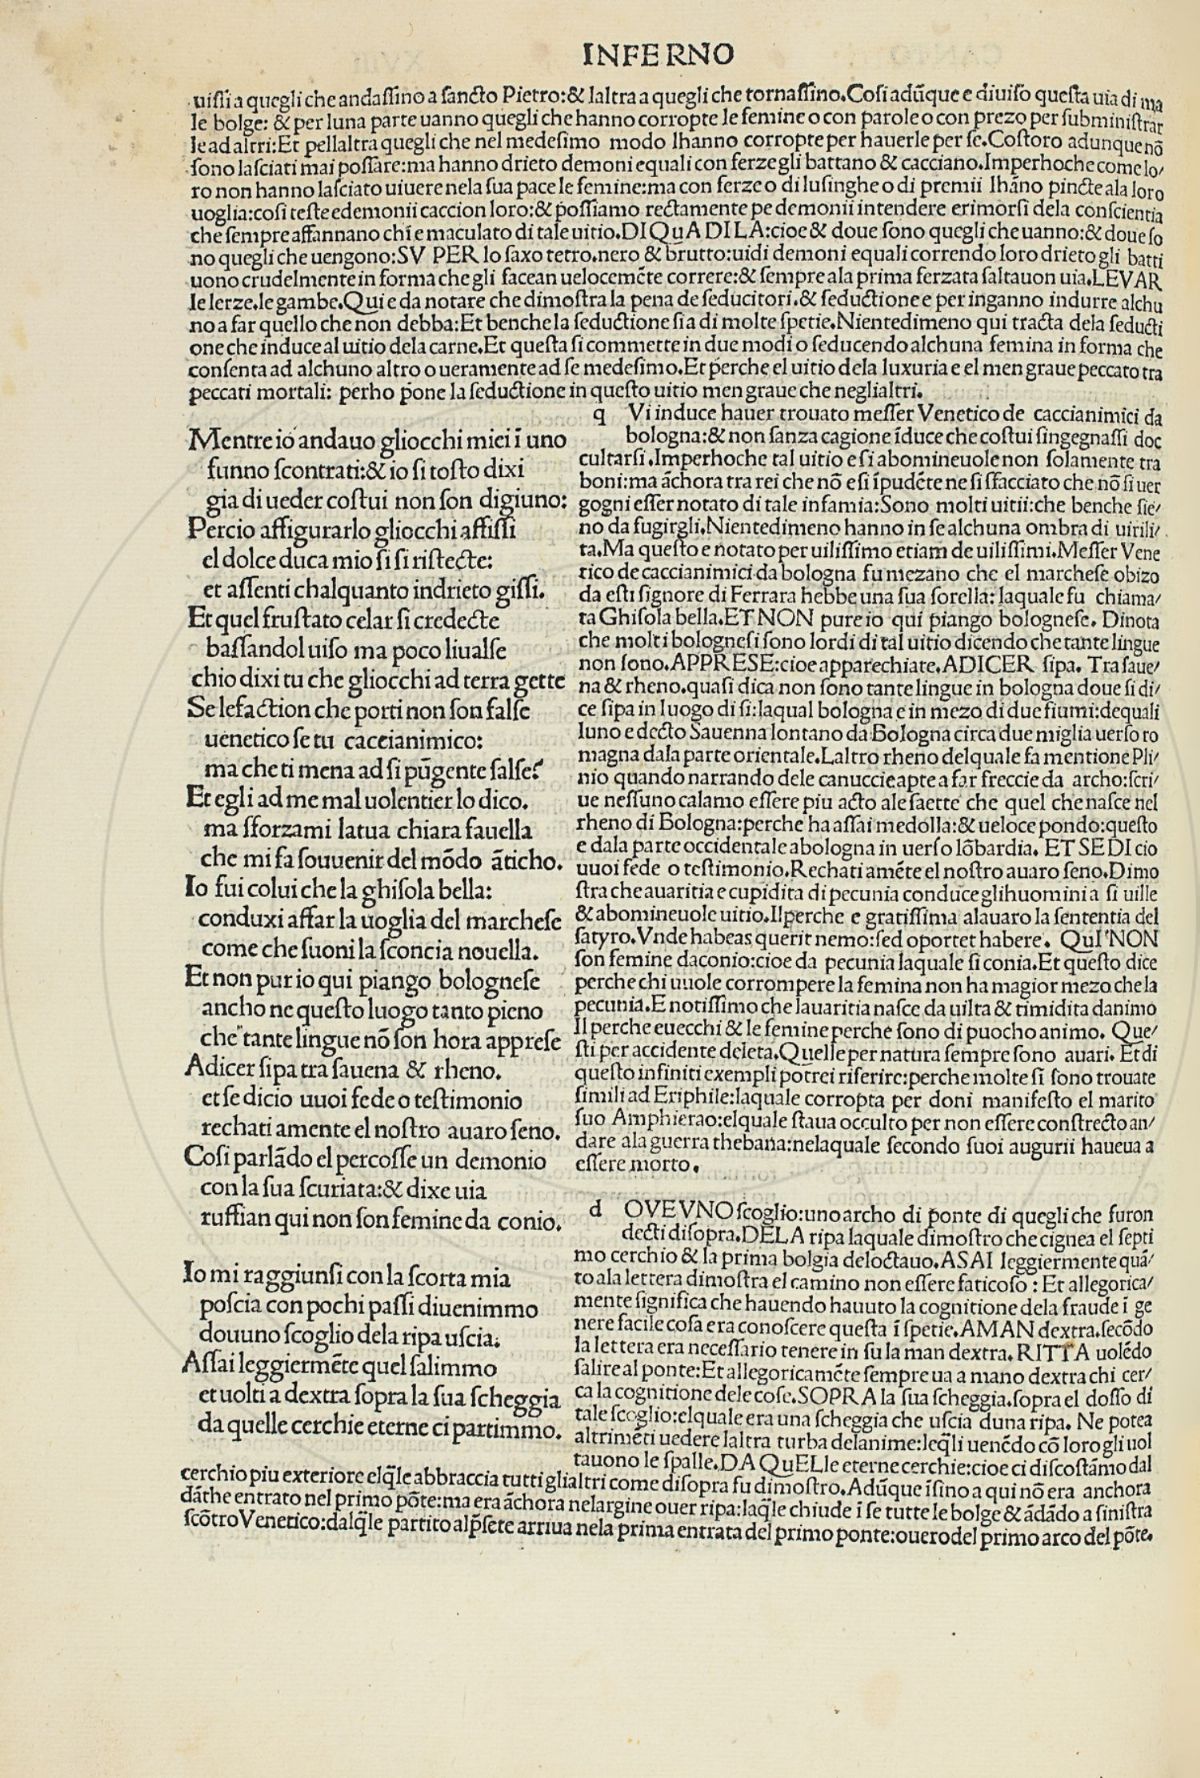 INFERNO
uissi a quegli che andassino a sancto Pietro:& laltra a quegli che tornassino.Cosi adũque e diuiso questa uia di ma
le bolge: & per luna parte uanno quegli che hanno corropte le femine o con parole o con prezo per subministrar
le ad altri:Et pellaltra quegli che nel medesimo modo lhanno corropte per hauerle per se.Costoro adunque nõ
sono lasciati mai possare:ma hanno drieto demoni equali con ferze gli battano & cacciano.Imperhoche come lo/
ro non hanno lasciato uiuere nela sua pace le femine:ma con ferze o di lusinghe o di premii lhãno pincte ala loro
uoglia:cosi teste edemonii caccion loro:& possiamo rectamente pe demonii intendere erimorsi dela conscientia
che sempre affannano chi e maculato di tale uitio.DI QuA DI LA:cioe & doue sono quegli che uanno:& doue so
no quegli che uengono:SV PER lo saxo tetro.nero & brutto:uidi demoni equali correndo loro drieto gli batti
uono crudelmente in forma che gli facean uelocemẽte correre:& sempre ala prima ferzata saltauon uia.LEVAR
le lerze.le gambe.Qui e da notare che dimostra la pena de seducitori.& seductione e per inganno indurre alchu
no a far quello che non debba:Et benche la seductione sia di molte spetie.Nientedimeno qui tracta dela seducti
one che induce al uitio dela carne.Et questa si commette in due modi o seducendo alchuna femina in forma che
consenta ad alchuno altro o ueramente ad se medesimo.Et perche el uitio dela luxuria e el men graue peccato tra
peccati mortali: perho põne la seductione in questo uitio men graue che neglialtri.
Mentre io andauo gliocchi miei ĩ uno
funno scontrati:& io si tosto dixi
gia di ueder costui non son digiuno:
Percio affigurarlo gliocchi affissi
el dolce duca mio si si ristecte:
et assenti chalquanto indrieto gissi.
Et quel frustato celar si credecte
bassandol uiso ma poco liualse
chio dixi tu che gliocchi ad terra gette
Se lefaction che porti non son false
uenetico se tu caccianimico:
ma che ti mena ad si pũgente salse?
Et egli ad me mal uolentier lo dico.
ma sforzami la tua chiara fauella
che mi fa souuenir del mõdo ãticho.
Io fui colui che la ghisola bella:
conduxi affar la uoglia del marchese
come che suoni la sconcia nouella.
Et non pur io qui piango bolognese
ancho ne questo luogo tanto pieno
che tante lingue nõ son hora apprese
Adicer sipa tra sauena & rheno.
et se di cio uuoi fede o testimonio
rechati a mente el nostro auaro seno.
Cosi parlãdo el percosse un demonio
con la sua scuriata:& dixe uia
ruffian qui non son femine da conio.
Io mi raggiunsi con la scorta mia
poscia con pochi passi diuenimmo
douuno scoglio dela ripa uscia.
Assai leggiermẽte quel salimmo
et uolti a dextra sopra la sua scheggia
da quelle cerchie eterne ci partimmo.
q Vi induce hauer trouato messer Venetico de caccianimici da
bologna:& non sanza cagione ĩduce che costui singegnassi doc
cultarsi.Imperhoche tal uitio e si abomineuole non solamente tra
boni:ma ãchora tra rei che nõ e si ĩpudẽte ne si sfacciato che nõ si uer
gogni esser notato di tale infamia:Sono molti uitii:che benche sie/
no da fugirgli.Nientedimeno hanno in se alchuna ombra di uirili/
ta.Ma questo e notato per uilissimo etiam de uilissimi.Messer Vene
tico de caccianimici da bologna fu mezano che el marchese obizo
da esti signore di Ferrara hebbe una sua sorella: laquale fu chiama/
ta Ghisola bella.ET NON pure io qui piango bolognese. Dinota
che molti bolognesi sono lordi di tal uitio dicendo che tante lingue
non sono.APPRESE:cioe apparechiate.ADICER sipa. Tra saue/
na & rheno.quasi dica non sono tante lingue in bologna doue si di/
ce sipa in luogo di si:laqual bologna e in mezo di due fiumi:dequali
luno e decto Sauenna lontano da Bologna circa due miglia uerso ro
magna dala parte orientale.Laltro rheno delquale fa mentione Pli/
nio quando narrando dele canuccie apte a far freccie da archo:scri/
ue nessuno calamo essere piu acto ale saette che quel che nasce nel
rheno di Bologna:perche ha assai medolla:& ueloce pondo:questo
e dala parte occidentale abologna in uerso lõbardia. ET SE DI cio
uuoi fede o testimonio.Rechati amẽte el nostro auaro seno.Dimo
stra che auaritia e cupidita di pecunia conduce glihuomini a si uille
& abomineuole uitio.Ilperche e gratissima alauaro la sententia del
satyro.Vnde habeas querit nemo:sed oportet habere. QuI NON
son femine daconio:cioe da pecunia laquale si conia.Et questo dice
perche chi uuole corrompere la femina non ha magior mezo che la
pecunia.E notissimo che lauaritia nasce da uilta & timidita danimo
Il perche euecchi & le femine perche sono di puocho animo. Que/
sti per accidente deleta.Quelle per natura sempre sono auari. Et di
questo infiniti exempli potrei riferire:perche molte si sono trouate
simili ad Eriphile:laquale corropta per doni manifesto el marito
suo Amphierao:elquale staua occulto per non essere constrecto an/
dare ala guerra thebana:nelaquale secondo suoi augurii haueua a
essere morto.
d OVE VNO scoglio:uno archo di ponte di quegli che furon
decti disopra.DELA ripa laquale dimostro che cignea el septi
mo cerchio & la prima bolgia deloctauo.ASAI leggiermente quã/
to ala lettera dimostra el camino non essere faticoso : Et allegorica/
mente significa che hauendo hauuto la cognitione dela fraude ĩ ge
nere facile cosa era conoscere questa ĩ spetie.AMAN dextra.secõdo
la lettera era necessario tenere in su la man dextra.RITTA uolẽdo
salire al ponte:Et allegoricamẽte sempre ua a mano dextra chi cer/
ca la cognitione dele cose.SOPRA la sua scheggia.sopra el dosso di
tale scoglio:elquale era una scheggia che uscia duna ripa. Ne potea
altrimẽti uedere laltra turba delanime:leq̃li uenẽdo cõ loro gli uol
tauono le spalle.DA QuELle eterne cerchie:cioe ci discostãmo dal
cerchio piu exteriore elq̃le abbraccia tutti glialtri come disopra fu dimostro.Adũque ĩsino a qui nõ era anchora
dãthe entrato nel primo põte:ma era ãchora nelargine ouer ripa:laq̃le chiude ĩ se tutte le bolge & ãdãdo a sinistra
scõtro Venetico:dalq̃le partito alp̃sete arriua nela prima entrata del primo ponte:ouero del primo arco del põte.